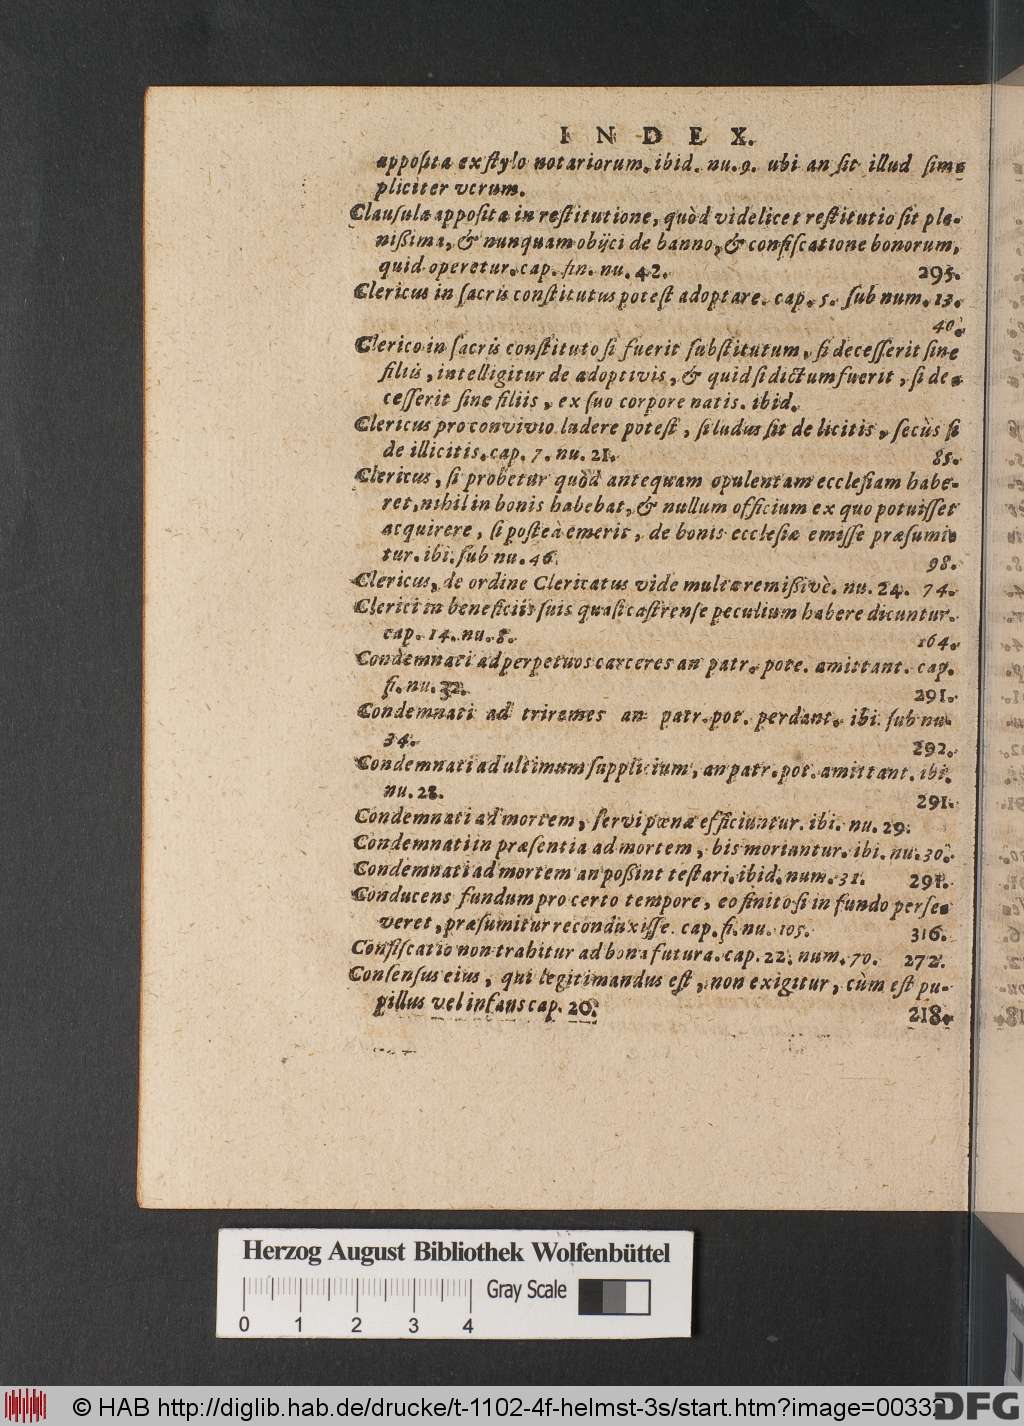 INDEX.
apposita ex stylo notariorum. ibid. nu. 9. ubi an sit illud sim-
pliciter verum.
Clausulæ appositæ in restitutione, quòd videlicet restitutio sit ple-
nißima, & nunquam obijci de banno, & confiscatione bonorum,
quid operetur. cap. fin. nu. 42. 295.
Clericus in sacris constitutus potest adoptare. cap. 5. sub num. 13.
40.
Clerico in sacris constituto si fuerit substitutum, si decesserit sine
filiis, intelligitur de adoptivis, & quid si dictum fuerit, si de-
cesserit sine filiis, ex suo corpore natis. ibid.
Clericus pro convivio ludere potest, si ludus sit de licitis, secùs si
de illicitis. cap. 7. nu. 21. 85.
Clericus, si probetur quòd antequam opulentam ecclesiam habe-
ret, nihil in bonis habebat, & nullum officium ex quo potuisset
acquirere, si posteà emerit, de bonis ecclesiæ emisse præsumi-
tur. ibi. sub nu. 46. 98.
Clericus, de ordine Clericatus vide multa remißivè. nu. 24. 74.
Clerici in beneficiis suis quasi castrense peculium habere dicuntur.
cap. 14. nu. 8. 164.
Condemnati ad perpetuos carceres an patr. pote. amittant. cap.
fi. nu. 32. 291.
Condemnati ad triremes an patr. pot. perdant. ibi. sub nu.
34. 292.
Condemnati ad ultimum supplicium, an patr. pot. amittant. ibi.
nu. 28. 291.
Condemnati ad mortem, servi pœnæ efficiuntur. ibi. nu. 29.
Condemnati in præsentia ad mortem, bis moriantur. ibi. nu. 30.
Condemnati ad mortem an poßint testari. ibid. num. 31. 291.
Conducens fundum pro certo tempore, eo finito si in fundo perse-
veret, præsumitur reconduxisse. cap. fi. nu. 105. 316.
Confiscatio non trahitur ad bona futura. cap. 22. num. 70. 272.
Consensus eius, qui legitimandus est, non exigitur, cùm est pu-
pillus vel infans cap. 20. 218.
Herzog August Bibliothek Wolfenbüttel
Gray Scale
0 1 2 3 4
© HAB http://diglib.hab.de/drucke/t-1102-4f-helmst-3s/start.htm?image=00332
DFG